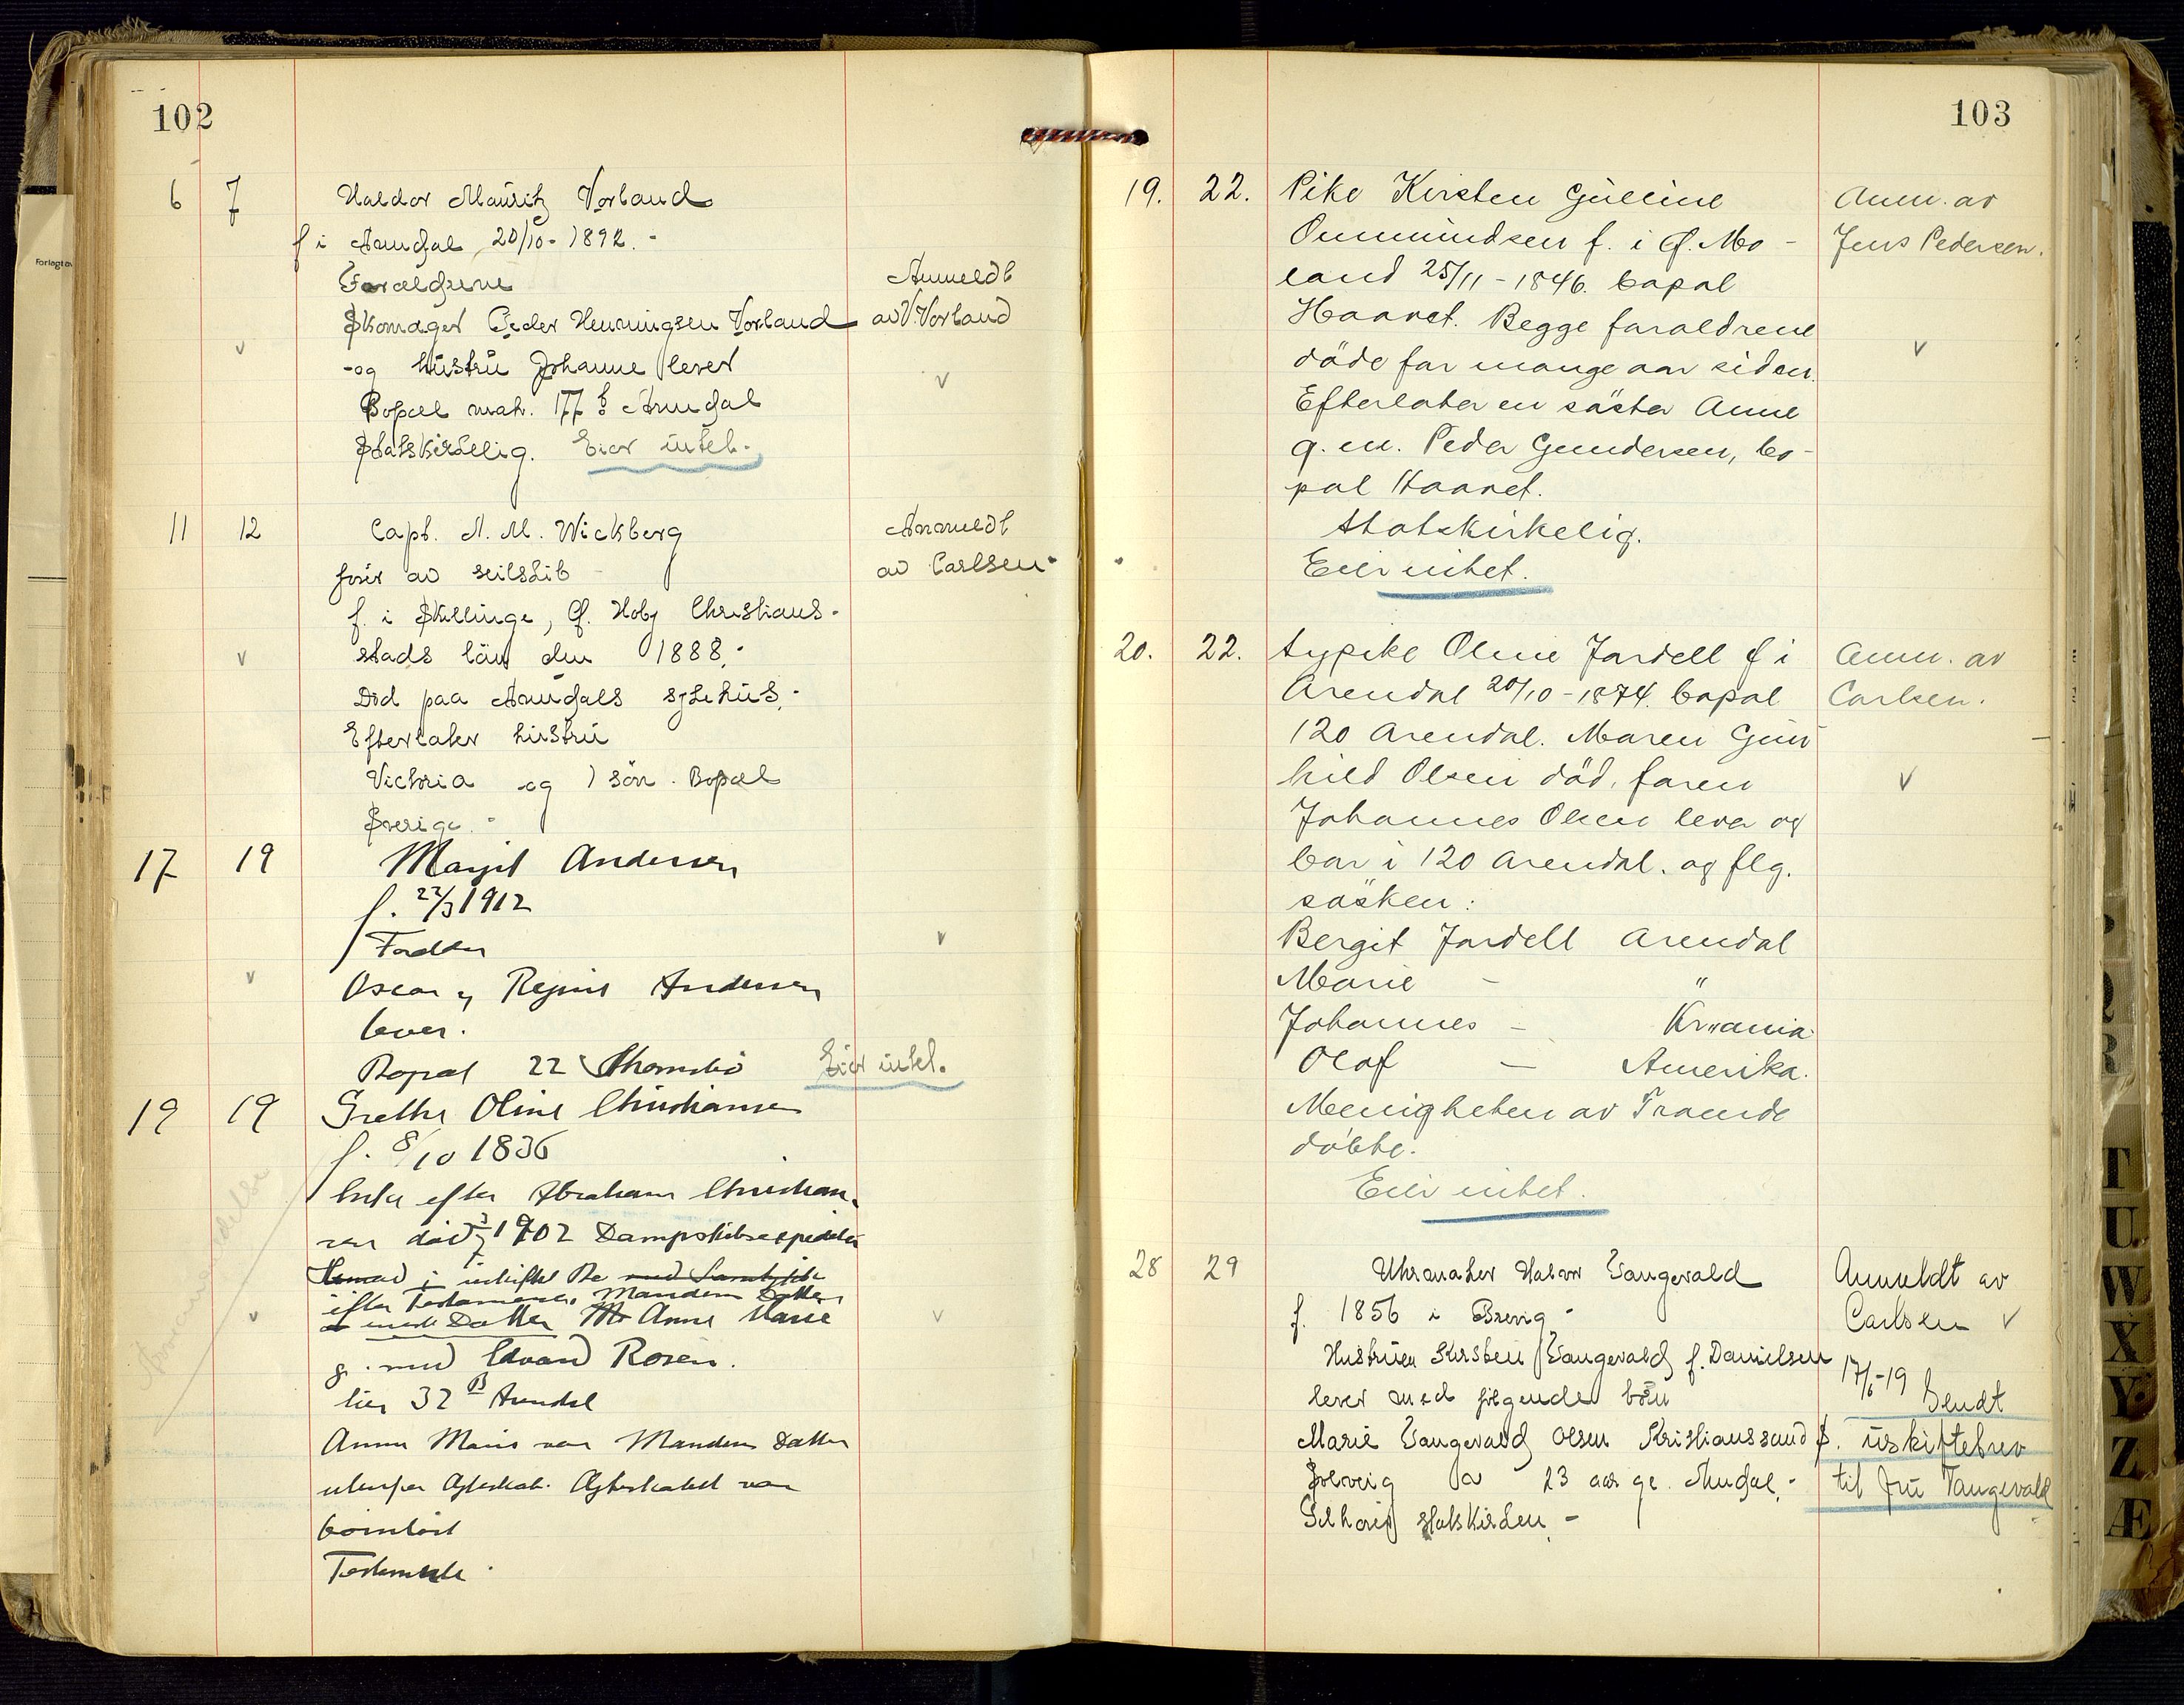 102
6 7 Haldor Mauritz Vorland
f i Arendal 20/10 - 1892. -
Forældrene Anmeldt
Skomager Peder Henningsen Vorland av V. Vorland
og hustru Johanne lever
Bopæl matr. 177 b Arendal
Statskirkelig. Eier intet.
11 12 Capt. N. M. Wickberg Anmeldt
fører av seilskib av Carlsen
f. i Skillinge, Ø. Hoby Christians-
stads län den 1888.-
Død paa Arendals sykehus.
Efterlater hustru
Victoria og 1 søn. Bopæl
Sverige.-
17 19 Margit Andersen
f. 22/3 1912
Forældre
Oscar og Regine Andersen
lever.
Bopæl 22 Eier intet.
19 19 Grethe Oline Christiansen
f. 8/10 1836
Enke efter Abraham Christian-
sen død 1902 Dampskibsexpeditør
i uskiftet Bo med
efter Testamente, Mandens Datter
Datter Anne Marie
g. med Edvard Rosén.
bor 32 B Arendal
Anne Marie var Mandens Datter
utenfor Ægteskab. Ægteskabet var
barnløst
Testamente.
103
19. 22. Pike Kirsten Guline Anm. av
Ommundsen f. i Ø. Mo- Jens Pedersen.
land 25/11 - 1846. bopæl
Haavet. Begge forældrene
døde for mange aar siden.
Efterlater en søster Anne
g. m. Peder Gundersen, bo-
pæl Haavet.
Statskirkelig.
Eier intet.
20. 22. Sypike Oline Jardell f i Anm. av
Arendal 20/10 - 1874. bopæl Carlsen.
120 Arendal. Maren Gun
hild Olsen død, faren
Johannes Olsen lever og
bor i 120 Arendal. og flg.
søsken:
Bergit Jardell Arendal
Marie - "
Johannes - Kr„ania.
Olaf — Amerika.
Menigheten av Troende
døbte.
Eier intet.
28 29 Uhrmaker Halvor Tangevald Anmeldt av
f. 1856 i Brevig - Carlsen
Hustruen Kirsten Tangevald f. Danielsen 17/6-19
lever med følgende børn Sendt
Marie Tangevald Olsen Kristianssand S. uskiftebrev
Solveig 23 aar gl. Arendal.- til Fru Tangevald
Tilhørig statskirken.-